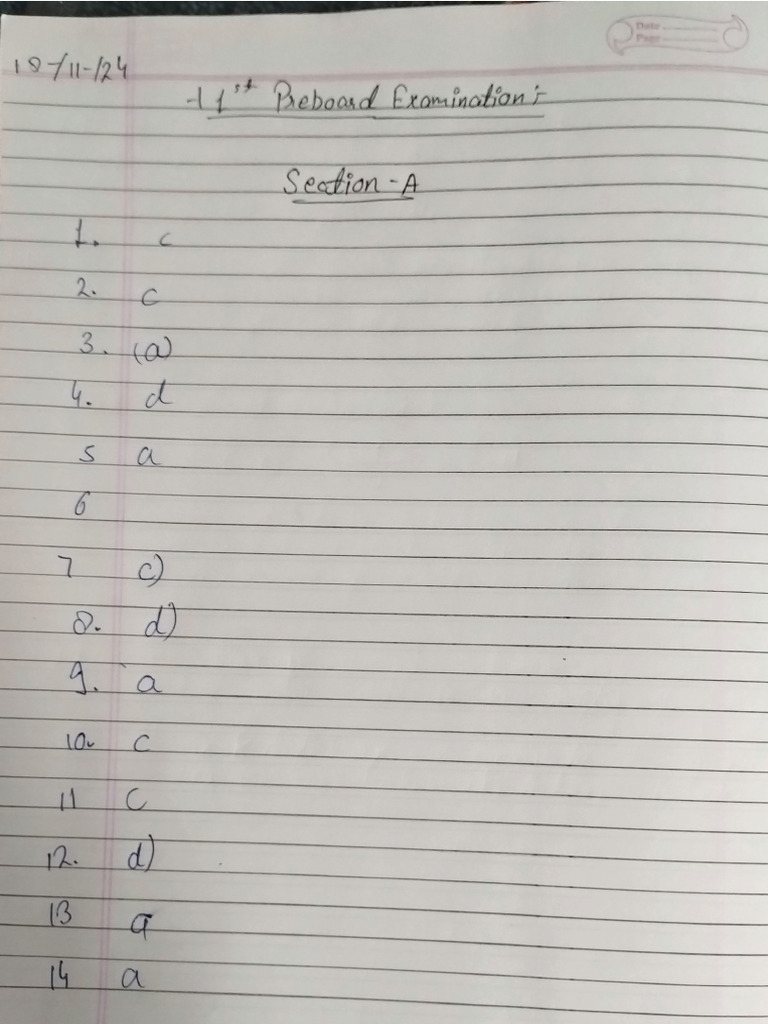 Date
Page
18/11/24
1st Preboard Examination:-
Section - A
1. c
2. c
3. (a)
4. d
5 a
6
7 c)
8. d)
9. a
10. c
11 c
12. d)
13 a
14 a